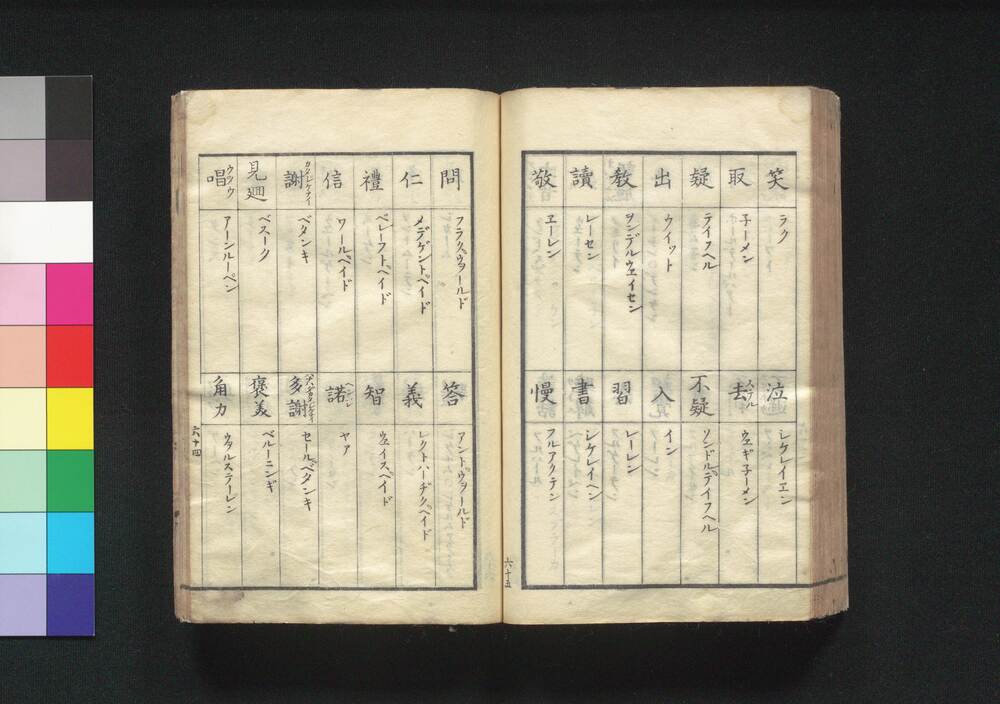 笑
ラク
取
子ーメン
疑
テイフヘル
出
ウイット
教
ヲンデルウエイセン
讀
レーセン
敬
エーレン
泣
シケレイエン
去
ヘラル
ウエギ子ーメン
不疑
ソンドルデイフヘル
入
イン
習
レーレン
書
シケレイヘン
慢
フルアクテン
六十五
問
フラクヴヲールド
仁
メデゲントヘイド
禮
ベレーフトヘイド
信
ワールヘイド
謝
ベタンキ
見廻
ベスーク
唱
ウタウ
アーンルーペン
答
アントヴヲールド
義
レクトハーヂクヘイド
智
ウエイスヘイド
諾
ヤア
多謝
セールベタンキ
褒美
ベルーニンギ
角力
ウヲルステーレン
六十四